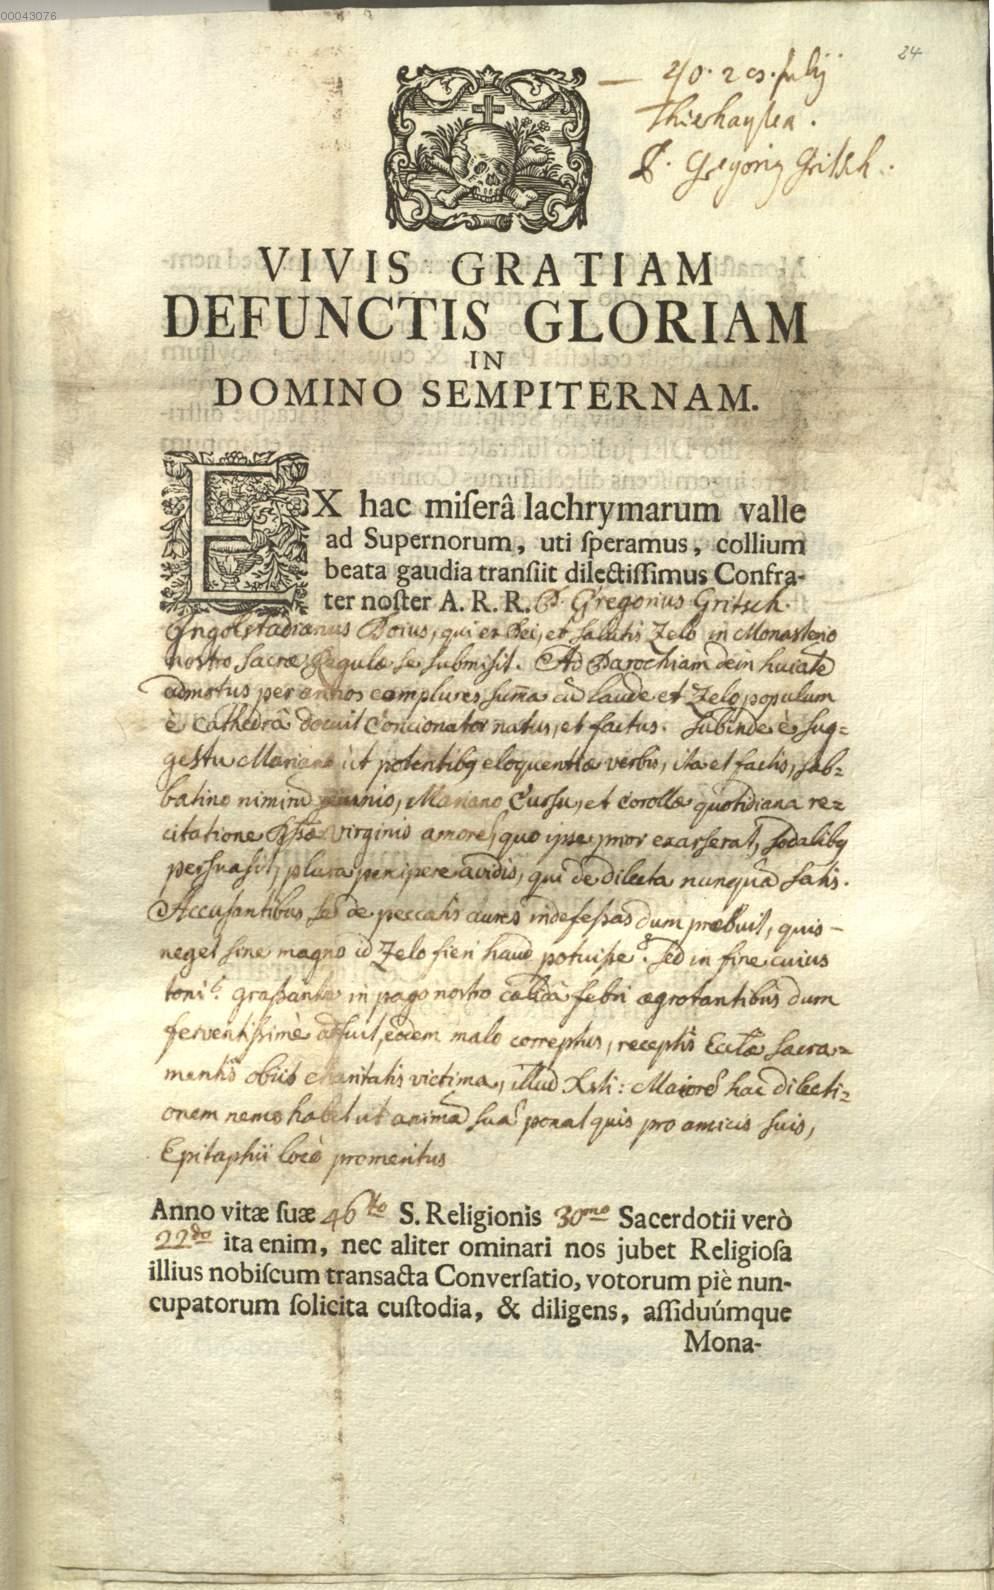 00043076
24
Thierhaupten.
P. Gregorius Gritsch.
VIVIS GRATIAM
DEFUNCTIS GLORIAM
IN
DOMINO SEMPITERNAM.
EX hac miserâ lachrymarum valle
ad Supernorum, uti speramus, collium
beata gaudia transiit dilectissimus Confra-
ter noster A. R. R. P. Gregorius Gritsch.
Ingolstadianus Boius, qui ex Dei, et salutis Zelo in Monasterio
nostro sacræ Regulæ se submisit. Ad Parochiam dein huiate
admotus per annos complures, sum̃a cũ laude et Zelo populum
è Cathedrâ docuit Concionator natus, et factus. Subinde è sug-
gestu Mariano ùt potentibq eloquentiæ verbis, ita et factis, sab-
batino nimirũ jeiunio, Mariano Cursu, et Corollæ quotidiana re-
citatione Bssæ Virginis amorẽ, quo ipse prior exarserat, sodalibq
persuasit, plura percipere avidis, qui de dilecta nunquã satis.
Accusantibus se de peccatis aures indefessas dum præbuit, quis-
neget sine magno id Zelo fieri haud potuisse? Sed in fine cuius
toni? grassante in pago nostro calidâ febri ægrotantibus dum
ferventissimè adfuit, eodem malo correptus, receptis Ecclæ Sacra-
mentis obiit charitatis victima, illud Xsti: Maiorẽ hac dilecti-
onem nemo habet ut animã suã ponat quis pro amicis suis,
Epitaphii locò promeritus
Anno vitæ suæ 46to S. Religionis 30mo Sacerdotii verò
22do ita enim, nec aliter ominari nos jubet Religiosa
illius nobiscum transacta Conversatio, votorum piè nun-
cupatorum solicita custodia, & diligens, assiduúmque
Mona-